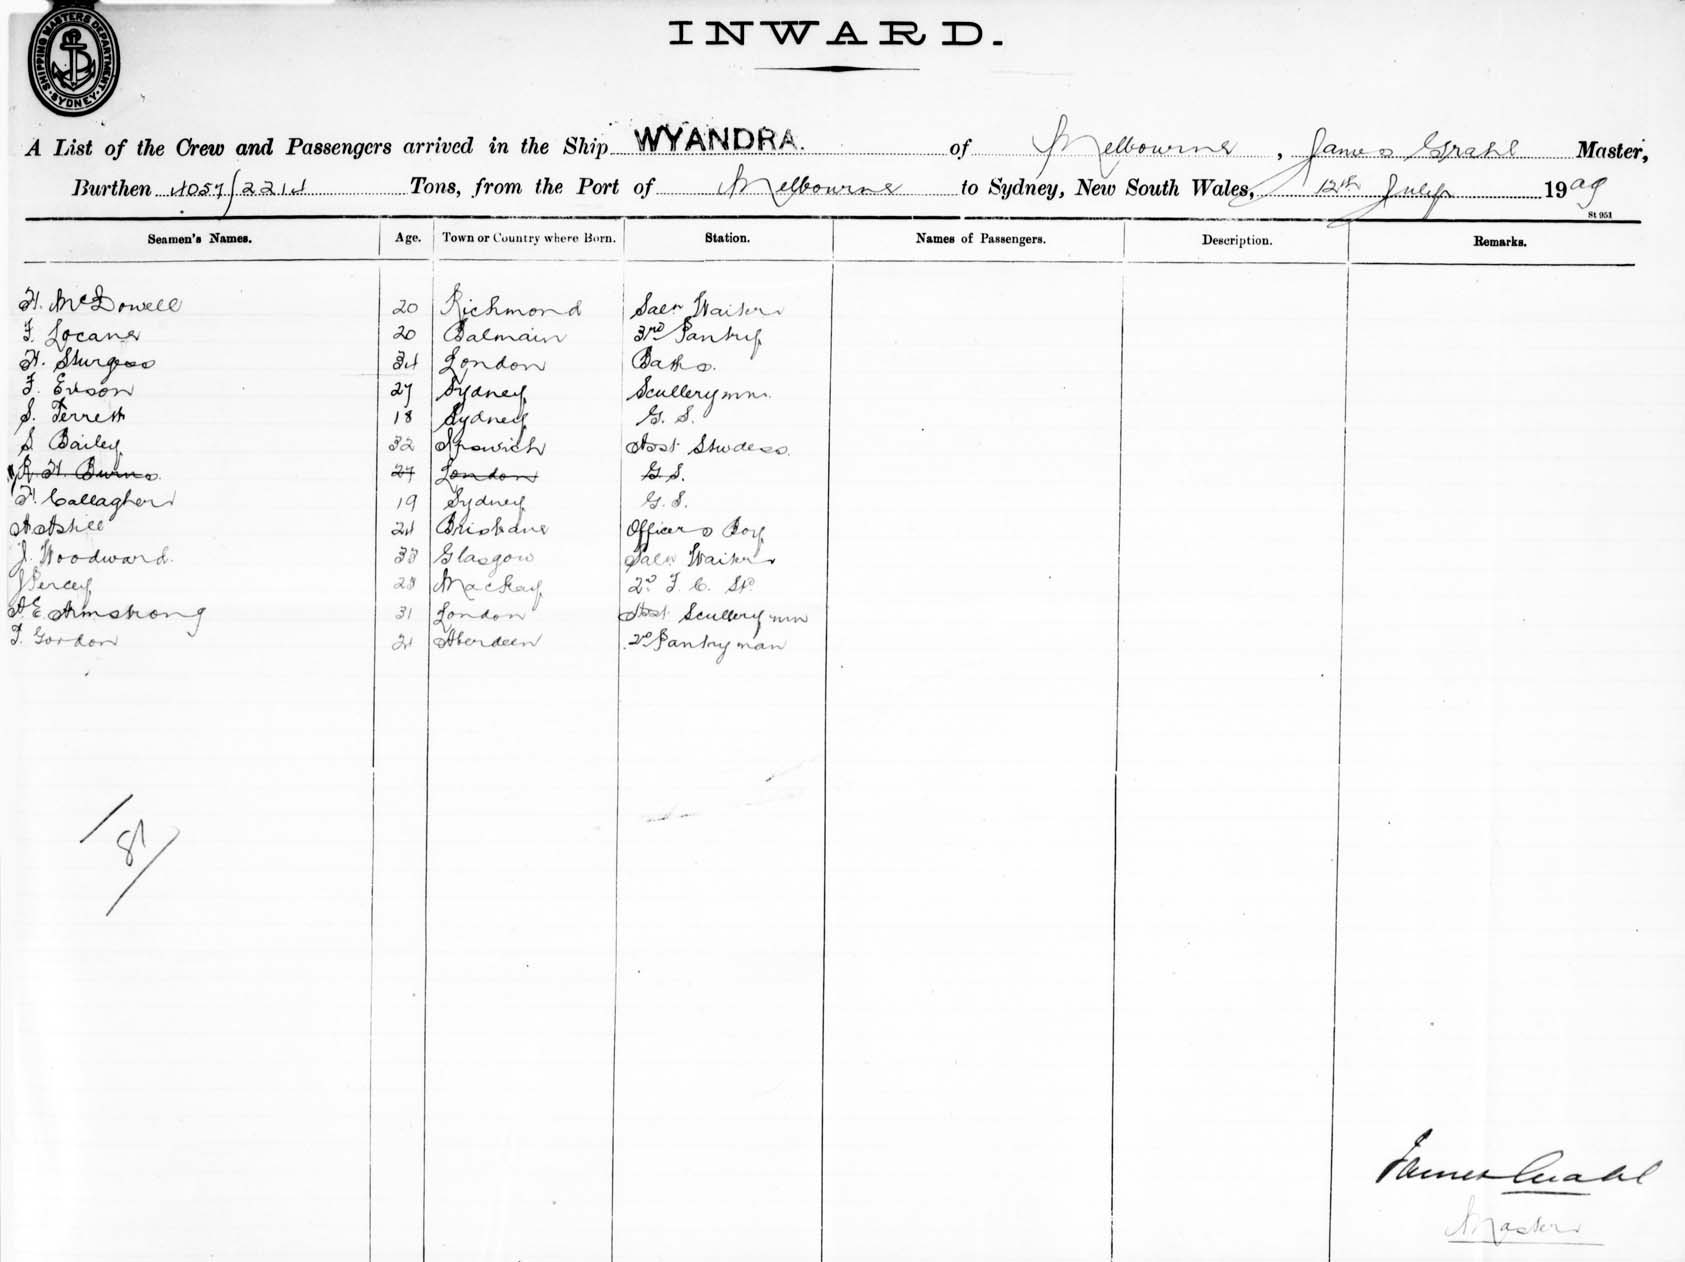 SHIPPING MASTERS DEPARTMENT. SYDNEY.
INWARD.
A List of the Crew and Passengers arrived in the Ship WYANDRA. of Melbourne, James Grahl Master,
Burthen 4057/2214 Tons, from the Port of Melbourne to Sydney, New South Wales, 12th July 1909
St 951
Seamen's Names. Age. Town or Country where Born. Station. Names of Passengers. Description. Remarks.
H. McDowell 20 Richmond Saln Waiter
F. Locane 20 Balmain 3rd Pantry
H. Sturgess 34 London Baths.
F. Evson 27 Sydney Scullerymn.
S. Ferrett 18 Sydney G. S.
S Bailey 32 Ipswich Asst Stwdess.
R H. Burns. 27 London G S.
H. Callagher 19 Sydney G. S.
A Astill 24 Brisbane Officers Boy
J. Woodward. 33 Glasgow Saln Waiter
J Percy 28 Mackay 2nd F. C. St.
A. E. Armstrong 31 London Asst Scullery mn
F. Gordon 21 Aberdeen 2nd Pantry man
81
James Grahl
Master